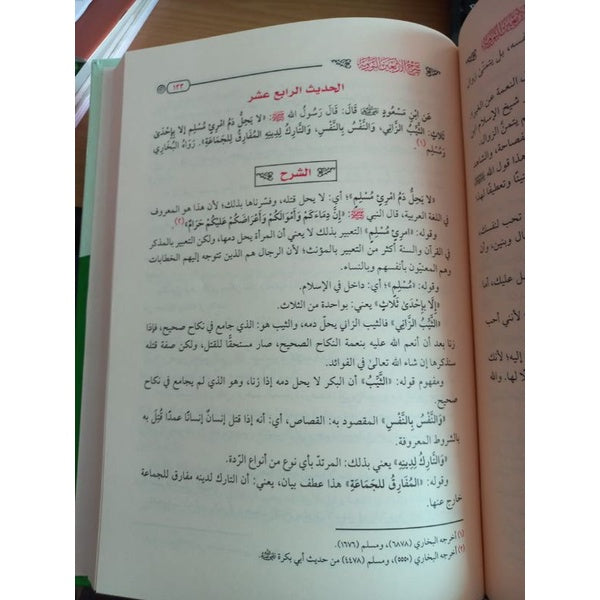 شرح الأربعين النووية
١٢٣
الحديث الرابع عشر
عَنِ ابْنِ مَسْعُودٍ رَضِيَ اللهُ عَنْهُ قَالَ: قَالَ رَسُولُ الله ﷺ: «لا يَحِلُّ دَمُ امْرِئٍ مُسْلِمٍ إلا بِإِحْدَىٰ
ثَلَاثٍ: الثَّيِّبُ الزَّانِي، وَالنَّفْسُ بِالنَّفْسِ، وَالتَّارِكُ لِدِينِهِ المُفَارِقُ لِلْجَمَاعَةِ». رَوَاهُ البُخَارِي
وَمُسْلِم (١).
الشرح
«لا يَحِلُّ دَمُ امْرِئٍ مُسْلِمٍ»؛ أي: لا يحل قتله، وفسّرناها بذلك؛ لأن هذا هو المعروف
في اللغة العربية، قال النبي ﷺ: «إِنَّ دِمَاءَكُمْ وَأَمْوَالَكُمْ وَأَعْرَاضَكُمْ عَلَيْكُمْ حَرَامٌ»(٢).
وقوله: «امْرِئٍ مُسْلِمٍ» التعبير بذلك لا يعني أن المرأة يحل دمها، ولكن التعبير بالمذكر
في القرآن والسنة أكثر من التعبير بالمؤنث؛ لأن الرجال هم الذين تتوجه إليهم الخطابات
وهم المعنيّون بأنفسهم وبالنساء.
وقوله: «مُسْلِمٍ»؛ أي: داخل في الإسلام.
«إِلَّا بِإِحْدَىٰ ثَلَاثٍ» يعني: بواحدة من الثلاث.
«الثَّيِّبُ الزَّانِي» فالثيب الزاني يحلّ دمه، والثيب هو: الذي جامع في نكاح صحيح، فإذا
زنا بعد أن أنعم الله عليه بنعمة النكاح الصحيح، صار مستحقًّا للقتل، ولكن صفة قتله
سنذكرها إن شاء الله تعالىٰ في الفوائد.
ومفهوم قوله: «الثَّيِّبُ» أن البكر لا يحل دمه إذا زنا، وهو الذي لم يجامع في نكاح
صحيح.
«وَالنَّفْسُ بِالنَّفْسِ» المقصود به: القصاص، أي: أنه إذا قتل إنسانٌ إنسانًا عمدًا قُتِلَ به
بالشروط المعروفة.
«وَالتَّارِكُ لِدِينِهِ» يعني بذلك: المرتدّ بأي نوع من أنواع الرّدة.
وقوله: «المُفَارِقُ لِلجَمَاعَةِ» هذا عطف بيان، يعني: أن التارك لدينه مفارق للجماعة
خارج عنها.
(١) أخرجه البخاري (٦٨٧٨)، ومسلم (١٦٧٦).
(٢) أخرجه البخاري (٥٥٥٠)، ومسلم (٤٤٧٨) من حديث أبي بكرة رَضِيَ اللهُ عَنْهُ.